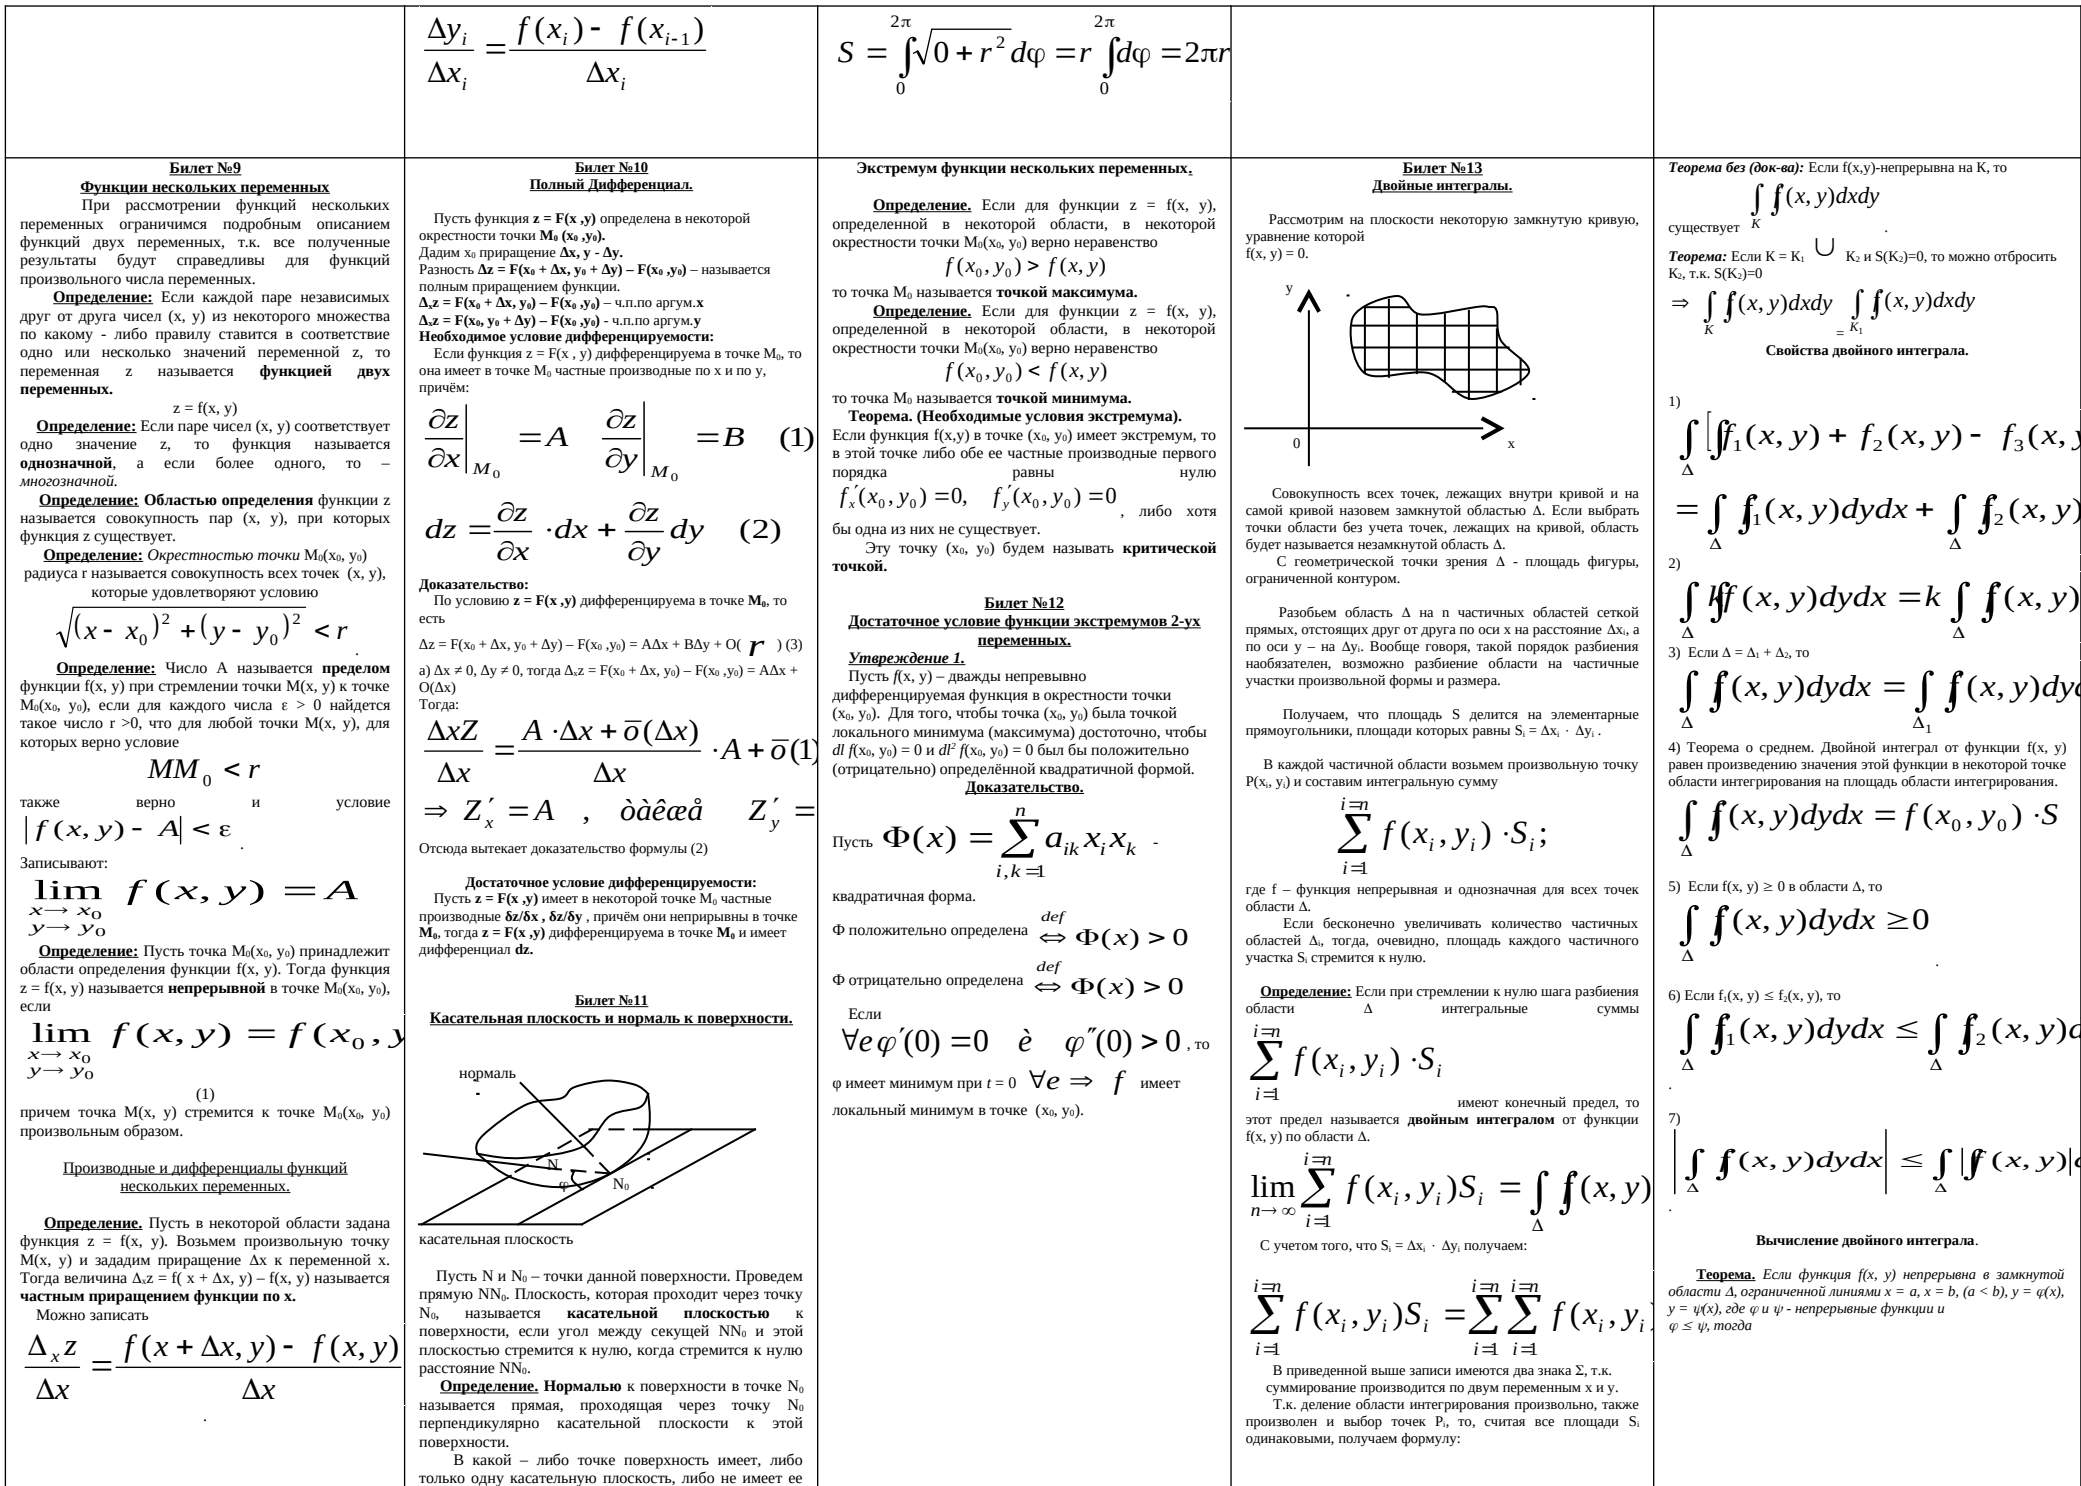 Δyᵢ/Δxᵢ = (f(xᵢ) - f(xᵢ₋₁))/Δxᵢ
S = ∫₀^2π √(0 + r²) dφ = r ∫₀^2π dφ = 2πr
Билет №9
Функции нескольких переменных
При рассмотрении функций нескольких
переменных ограничимся подробным описанием
функций двух переменных, т.к. все полученные
результаты будут справедливы для функций
произвольного числа переменных.
Определение: Если каждой паре независимых
друг от друга чисел (х, у) из некоторого множества
по какому - либо правилу ставится в соответствие
одно или несколько значений переменной z, то
переменная z называется функцией двух
переменных.
z = f(x, y)
Определение: Если паре чисел (х, у) соответствует
одно значение z, то функция называется
однозначной, а если более одного, то –
многозначной.
Определение: Областью определения функции z
называется совокупность пар (х, у), при которых
функция z существует.
Определение: Окрестностью точки М₀(х₀, у₀)
радиуса r называется совокупность всех точек (х, у),
которые удовлетворяют условию
√((x - x₀)² + (y - y₀)²) < r.
Определение: Число А называется пределом
функции f(x, y) при стремлении точки М(х, у) к точке
М₀(х₀, у₀), если для каждого числа ε > 0 найдется
такое число r >0, что для любой точки М(х, у), для
которых верно условие
MM₀ < r
также верно и условие
|f(x, y) - A| < ε.
Записывают:
lim f(x, y) = A
x→x₀
y→y₀
Определение: Пусть точка М₀(х₀, у₀) принадлежит
области определения функции f(x, y). Тогда функция
z = f(x, y) называется непрерывной в точке М₀(х₀, у₀),
если
lim f(x, y) = f(x₀, y
x→x₀
y→y₀
(1)
причем точка М(х, у) стремится к точке М₀(х₀, у₀)
произвольным образом.
Производные и дифференциалы функций
нескольких переменных.
Определение. Пусть в некоторой области задана
функция z = f(x, y). Возьмем произвольную точку
М(х, у) и зададим приращение Δх к переменной х.
Тогда величина Δₓz = f( x + Δx, y) – f(x, y) называется
частным приращением функции по х.
Можно записать
Δₓz/Δx = (f(x + Δx, y) - f(x, y))/Δx
.
Билет №10
Полный Дифференциал.
Пусть функция z = F(x ,y) определена в некоторой
окрестности точки M₀ (x₀ ,y₀).
Дадим x₀ приращение Δx, y - Δy.
Разность Δz = F(x₀ + Δx, y₀ + Δy) – F(x₀ ,y₀) – называется
полным приращением функции.
Δₓz = F(x₀ + Δx, y₀) – F(x₀ ,y₀) – ч.п.по аргум.x
Δₓz = F(x₀, y₀ + Δy) – F(x₀ ,y₀) - ч.п.по аргум.y
Необходимое условие дифференцируемости:
Если функция z = F(x , y) дифференцируема в точке М₀, то
она имеет в точке М₀ частные производные по x и по y,
причём:
∂z/∂x|M₀ = A ∂z/∂y|M₀ = B (1)
dz = ∂z/∂x · dx + ∂z/∂y dy (2)
Доказательство:
По условию z = F(x ,y) дифференцируема в точке M₀, то
есть
Δz = F(x₀ + Δx, y₀ + Δy) – F(x₀ ,y₀) = AΔx + BΔy + O( r ) (3)
а) Δx ≠ 0, Δy ≠ 0, тогда Δₓz = F(x₀ + Δx, y₀) – F(x₀ ,y₀) = AΔx +
O(Δx)
Тогда:
ΔxZ/Δx = (A · Δx + o̅(Δx))/Δx · A + o̅(1)
⇒ Z′ₓ = A , òàêæå Z′y =
Отсюда вытекает доказательство формулы (2)
Достаточное условие дифференцируемости:
Пусть z = F(x ,y) имеет в некоторой точке М₀ частные
производные δz/δx , δz/δy , причём они неприрывны в точке
M₀, тогда z = F(x ,y) дифференцируема в точке M₀ и имеет
дифференциал dz.
Билет №11
Касательная плоскость и нормаль к поверхности.
нормаль
N
φ N₀
касательная плоскость
Пусть N и N₀ – точки данной поверхности. Проведем
прямую NN₀. Плоскость, которая проходит через точку
N₀, называется касательной плоскостью к
поверхности, если угол между секущей NN₀ и этой
плоскостью стремится к нулю, когда стремится к нулю
расстояние NN₀.
Определение. Нормалью к поверхности в точке N₀
называется прямая, проходящая через точку N₀
перпендикулярно касательной плоскости к этой
поверхности.
В какой – либо точке поверхность имеет, либо
только одну касательную плоскость, либо не имеет ее
Экстремум функции нескольких переменных.
Определение. Если для функции z = f(x, y),
определенной в некоторой области, в некоторой
окрестности точки М₀(х₀, у₀) верно неравенство
f(x₀, y₀) > f(x, y)
то точка М₀ называется точкой максимума.
Определение. Если для функции z = f(x, y),
определенной в некоторой области, в некоторой
окрестности точки М₀(х₀, у₀) верно неравенство
f(x₀, y₀) < f(x, y)
то точка М₀ называется точкой минимума.
Теорема. (Необходимые условия экстремума).
Если функция f(x,y) в точке (х₀, у₀) имеет экстремум, то
в этой точке либо обе ее частные производные первого
порядка равны нулю
f′ₓ(x₀, y₀) = 0, f′y(x₀, y₀) = 0 , либо хотя
бы одна из них не существует.
Эту точку (х₀, у₀) будем называть критической
точкой.
Билет №12
Достаточное условие функции экстремумов 2-ух
переменных.
Утвреждение 1.
Пусть f(x, y) – дважды непревывно
дифференцируемая функция в окрестности точки
(x₀, y₀). Для того, чтобы точка (x₀, y₀) была точкой
локального минимума (максимума) достоточно, чтобы
dl f(x₀, y₀) = 0 и dl² f(x₀, y₀) = 0 был бы положительно
(отрицательно) определённой квадратичной формой.
Доказательство.
Пусть Φ(x) = ∑ⁿ i,k=1 aᵢₖxᵢxₖ -
квадратичная форма.
Ф положительно определена def ⇔ Φ(x) > 0
Ф отрицательно определена def ⇔ Φ(x) > 0
Если
∀e φ′(0) = 0 è φ″(0) > 0 , то
φ имеет минимум при t = 0 ∀e ⇒ f имеет
локальный минимум в точке (x₀, y₀).
Билет №13
Двойные интегралы.
Рассмотрим на плоскости некоторую замкнутую кривую,
уравнение которой
f(x, y) = 0.
y
0 x
Совокупность всех точек, лежащих внутри кривой и на
самой кривой назовем замкнутой областью Δ. Если выбрать
точки области без учета точек, лежащих на кривой, область
будет называется незамкнутой область Δ.
С геометрической точки зрения Δ - площадь фигуры,
ограниченной контуром.
Разобьем область Δ на n частичных областей сеткой
прямых, отстоящих друг от друга по оси х на расстояние Δхᵢ, а
по оси у – на Δуᵢ. Вообще говоря, такой порядок разбиения
наобязателен, возможно разбиение области на частичные
участки произвольной формы и размера.
Получаем, что площадь S делится на элементарные
прямоугольники, площади которых равны Sᵢ = Δxᵢ · Δyᵢ .
В каждой частичной области возьмем произвольную точку
Р(хᵢ, уᵢ) и составим интегральную сумму
∑ i=1, i=n f(xᵢ, yᵢ) · Sᵢ;
где f – функция непрерывная и однозначная для всех точек
области Δ.
Если бесконечно увеличивать количество частичных
областей Δᵢ, тогда, очевидно, площадь каждого частичного
участка Sᵢ стремится к нулю.
Определение: Если при стремлении к нулю шага разбиения
области Δ интегральные суммы
∑ i=1, i=n f(xᵢ, yᵢ) · Sᵢ
имеют конечный предел, то
этот предел называется двойным интегралом от функции
f(x, y) по области Δ.
lim n→∞ ∑ i=1, i=n f(xᵢ, yᵢ)Sᵢ = ∫∫Δ f(x, y)
С учетом того, что Sᵢ = Δxᵢ · Δyᵢ получаем:
∑ i=1, i=n f(xᵢ, yᵢ)Sᵢ = ∑ i=1, i=n ∑ i=1, i=n f(xᵢ, yᵢ
В приведенной выше записи имеются два знака Σ, т.к.
суммирование производится по двум переменным х и у.
Т.к. деление области интегрирования произвольно, также
произволен и выбор точек Рᵢ, то, считая все площади Sᵢ
одинаковыми, получаем формулу:
Теорема без (док-ва): Если f(x,y)-непрерывна на К, то
существует ∫∫K f(x, y)dxdy .
Теорема: Если К = К₁ ∪ К₂ и S(К₂)=0, то можно отбросить
К₂, т.к. S(К₂)=0
⇒ ∫∫K f(x, y)dxdy = ∫∫K₁ f(x, y)dxdy
Свойства двойного интеграла.
1)
∫∫Δ [f₁(x, y) + f₂(x, y) - f₃(x, y
= ∫∫Δ f₁(x, y)dydx + ∫∫Δ f₂(x, y)
2)
∫∫Δ kf(x, y)dydx = k ∫∫Δ f(x, y)
3) Если Δ = Δ₁ + Δ₂, то
∫∫Δ f(x, y)dydx = ∫∫Δ₁ f(x, y)dyd
4) Теорема о среднем. Двойной интеграл от функции f(x, y)
равен произведению значения этой функции в некоторой точке
области интегрирования на площадь области интегрирования.
∫∫Δ f(x, y)dydx = f(x₀, y₀) · S
5) Если f(x, y) ≥ 0 в области Δ, то
∫∫Δ f(x, y)dydx ≥ 0
.
6) Если f₁(x, y) ≤ f₂(x, y), то
∫∫Δ f₁(x, y)dydx ≤ ∫∫Δ f₂(x, y)d
.
7)
|∫∫Δ f(x, y)dydx| ≤ ∫∫Δ |f(x, y)|d
.
Вычисление двойного интеграла.
Теорема. Если функция f(x, y) непрерывна в замкнутой
области Δ, ограниченной линиями х = a, x = b, (a < b), y = φ(x),
y = ψ(x), где φ и ψ - непрерывные функции и
φ ≤ ψ, тогда